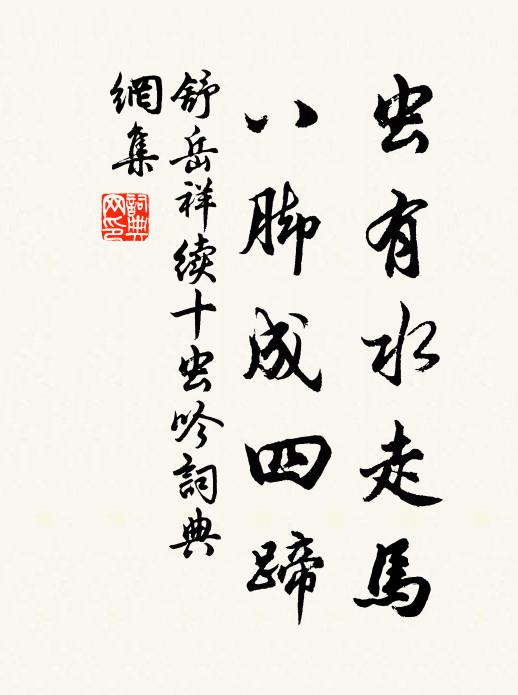 虫有水走馬
八脚成四蹄
舒岳祥续十虫吟詞典
網集
詞典
网印